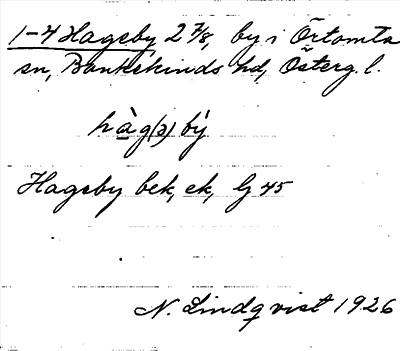 1-4 Hageby 2 7/8, by i Örtomta
sn, Bankekinds hd, Österg. l.
hàg(ə)bý
Hageby bek, ek, Lj 45
N. Lindqvist 1926